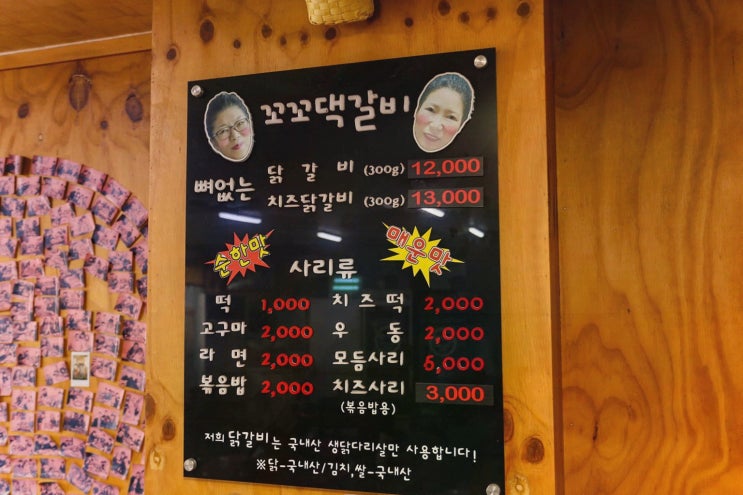 꼬꼬댁갈비
뼈없는
닭갈비 (300g) 12,000
치즈닭갈비 (300g) 13,000
순한맛
매운맛
사리류
떡 1,000 치즈떡 2,000
고구마 2,000 우동 2,000
라면 2,000 모듬사리 6,000
볶음밥 2,000 치즈사리 3,000
(볶음밥용)
저희 닭갈비는 국내산 생닭다리살만 사용합니다!
※닭-국내산/김치,쌀-국내산